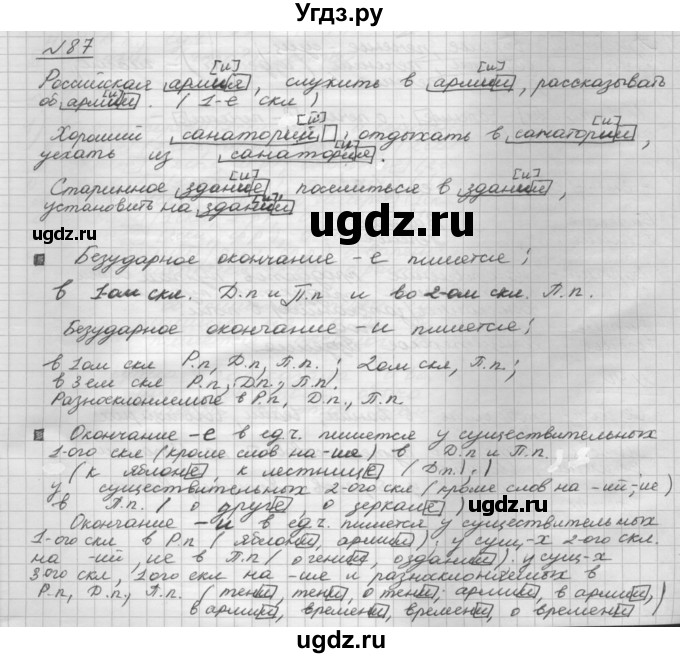 Угдз.ру
№87
[и] [и]
Российская армия, служить в армии, рассказывать
[и]
об армии. (1-е скл)
[й] [и]
Хороший санаторий, отдыхать в санатории,
[и]
уехать из санатория.
[и] [и]
Старинное здание, поселиться в здании,
[и]
установить на здании
ugdz.ru
ugdz.ru
ugdz.ru
Безударное окончание -е пишется;
в 1-ом скл. Д.п и П.п и во 2-ом скл. П.п.
Безударное окончание -и пишется;
в 1ом скл Р.п, Д.п, П.п.; 2ом скл, П.п.;
в 3ем скл Р.п, Д.п., П.п.
Разносклоняемые в Р.п, Д.п., П.п.
Окончание -е в ед.ч. пишется у существительных
1-ого скл (кроме слов на -ие) в Д.п и П.п.
(к яблоне, к лестнице (Д.п).)
у существительных 2-ого скл (кроме слов на -ий; ие)
в П.п. (о друге, о зеркале)
Окончание -и в ед.ч. пишется у существительных
1-ого скл в Р.п (яблони, армии). у сущ-х 2-ого скл.
на -ий, ие в П.п (о гении, о здании). у сущ-х
3-ого скл, 1ого скл на -ие и разносклоняемых в
Р.п, Д.п., П.п. (тени, тени, о тени; армии, в армии,)
в армии, времени, времени, о времени)
ugdz.ru
ugdz.ru